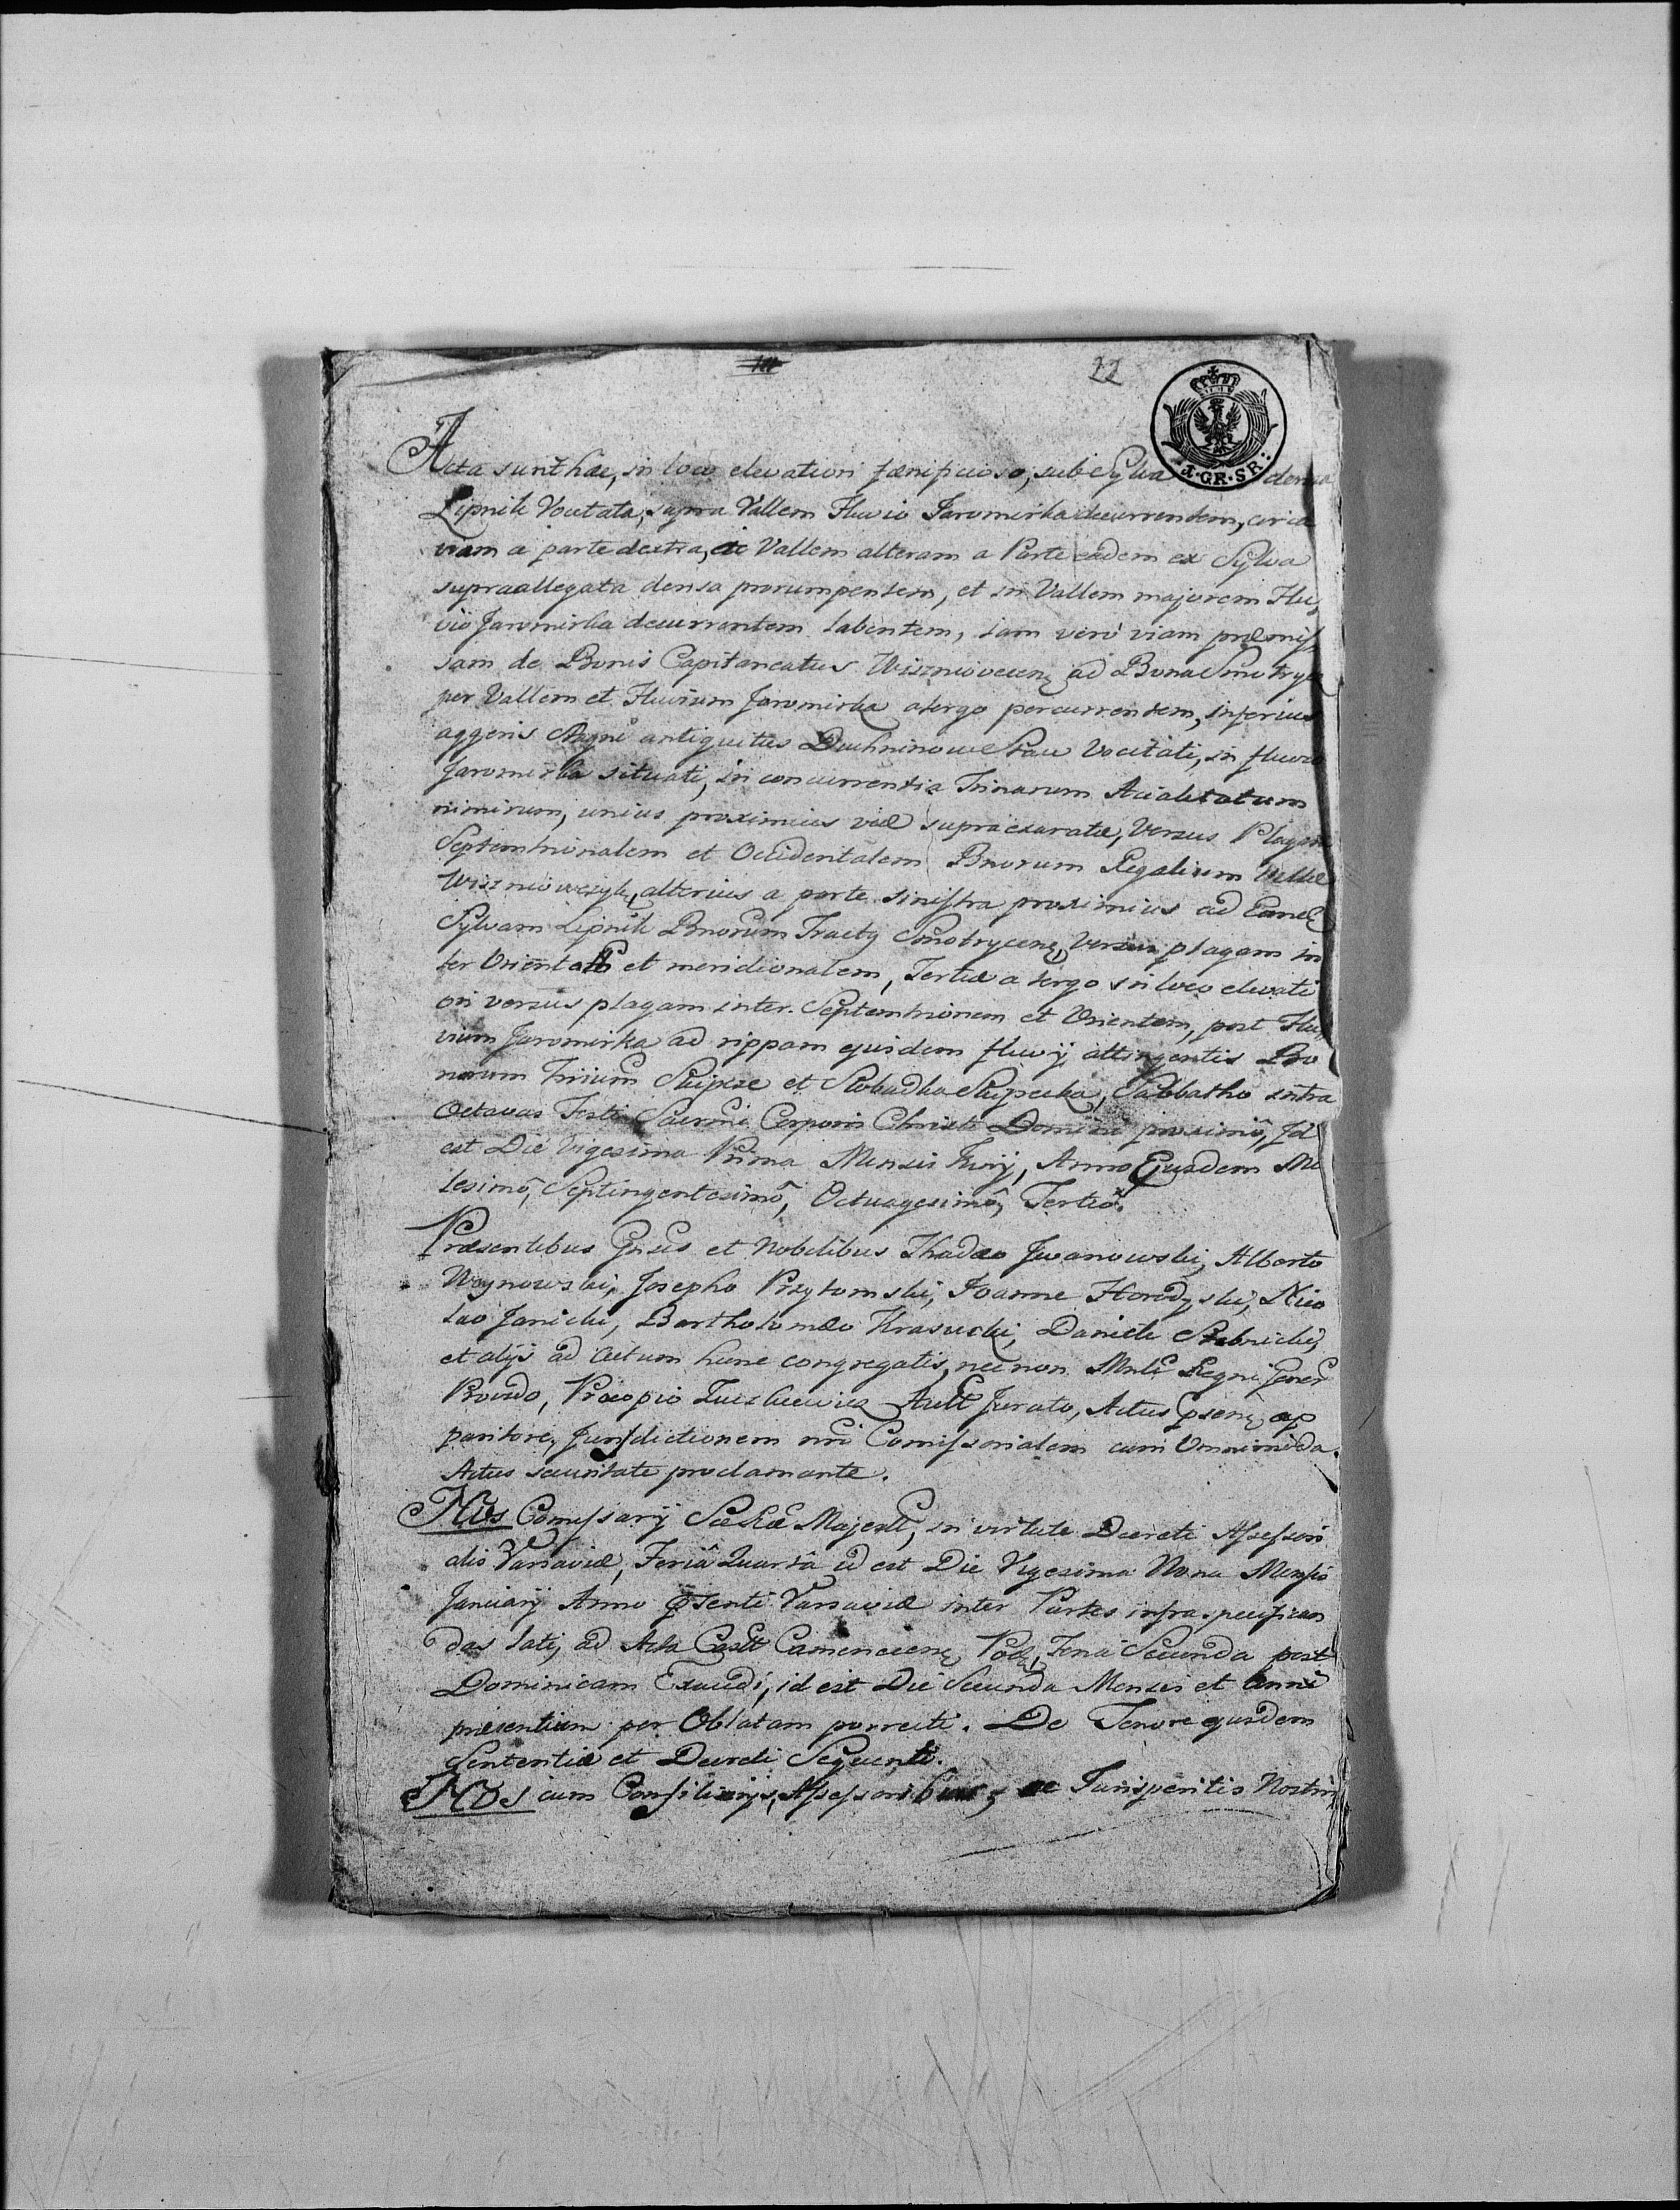 22
1. GR. SR:
Acta sunt hæc, in loco elevatiori fænificioso, sub Sylva densa
Lipnik Vocitata, supra Vallem Fluvio Jaromirka decurrentem, circa
viam a parte dextra, et Vallem alteram a Parte eadem ex Sylva
supraallegata densa prorumpentem, et in Vallem majorem Flu,
vio Jaromirka decurrentem labentem, iam vero viam præmis,
sam de Bonis Capitaneatus Wiszniovecen̄ ad Bona Smotrycz
per Vallem et Fluvium Jaromirka a tergo percurrentem, inferius
aggeris antiquitus Stau Vocitati, in fluvio
Jaromirka situati, in concurrentia Trinarum Acialitatum
nimirum, unius proximius viæ supraexaratæ, Versus Plagam
Septemtrionalem et Occidentalem Bnorum Regalium Villæ
Wiszniowczyk, alterius a parte sinistra proximius ad
Sylvam Lipnik Bnorum Tractq Smotrycen̄, Versus plagam in
ter Orientem et meridionalem, Tertiæ a tergo in loco elevati
ori versus plagam inter Septemtrionem et Orientem, post Flu
vium Jaromirka ad rippam ejusdem fluvij attingentis Bo
norum Triium et Slobudka Skipecka, Sabbatho intra
Octavas Festi Sacrmi Corporis Christi Domini proximô, Id
est Die Vigesima Prima Mensis Junij, Anno Ejusdem Mil
lesimô, Septingentesimô, Octuagesimô, Tertiô.
Præsentibus Gnsis et Nobilibus Thadæo Jwanowski, Alberto
Woynowski, Josepho Przytomski, Joanne Horodyski, Nico
lao Janicki, Bartholomæo Krasucki, Daniele
et alijs ad Actum hunc congregatis, nec non Mnlī Regni Gener
Provido, Procopio Jurato, Actus pñsen̄ ap
paritore, Jurisdictionem nrī Comissorialem cum Omnimoda
Actus securitate proclamante.
NOS Comissarij Sæ Ræ Majestt, in virtute Decreti Assessori
alis Varsaviæ, Feriâ Quartâ id est Die Vigesima Nona Mensis
Januarij Anno pñsenti Varsaviæ inter Partes infra specifican
das lati, ad Acta Castr Camenecen̄ Pod, Feria Secunda post
Dominicam Exaudi, id est Die Secunda Mensis et Anni
præsentium per Oblatam porrecti. De Tenore ejusdem
Sententiæ et Decreti Sequenti.
NOS cum Consiliarijs, Assessoribus, ac Jurisperitis Nostris